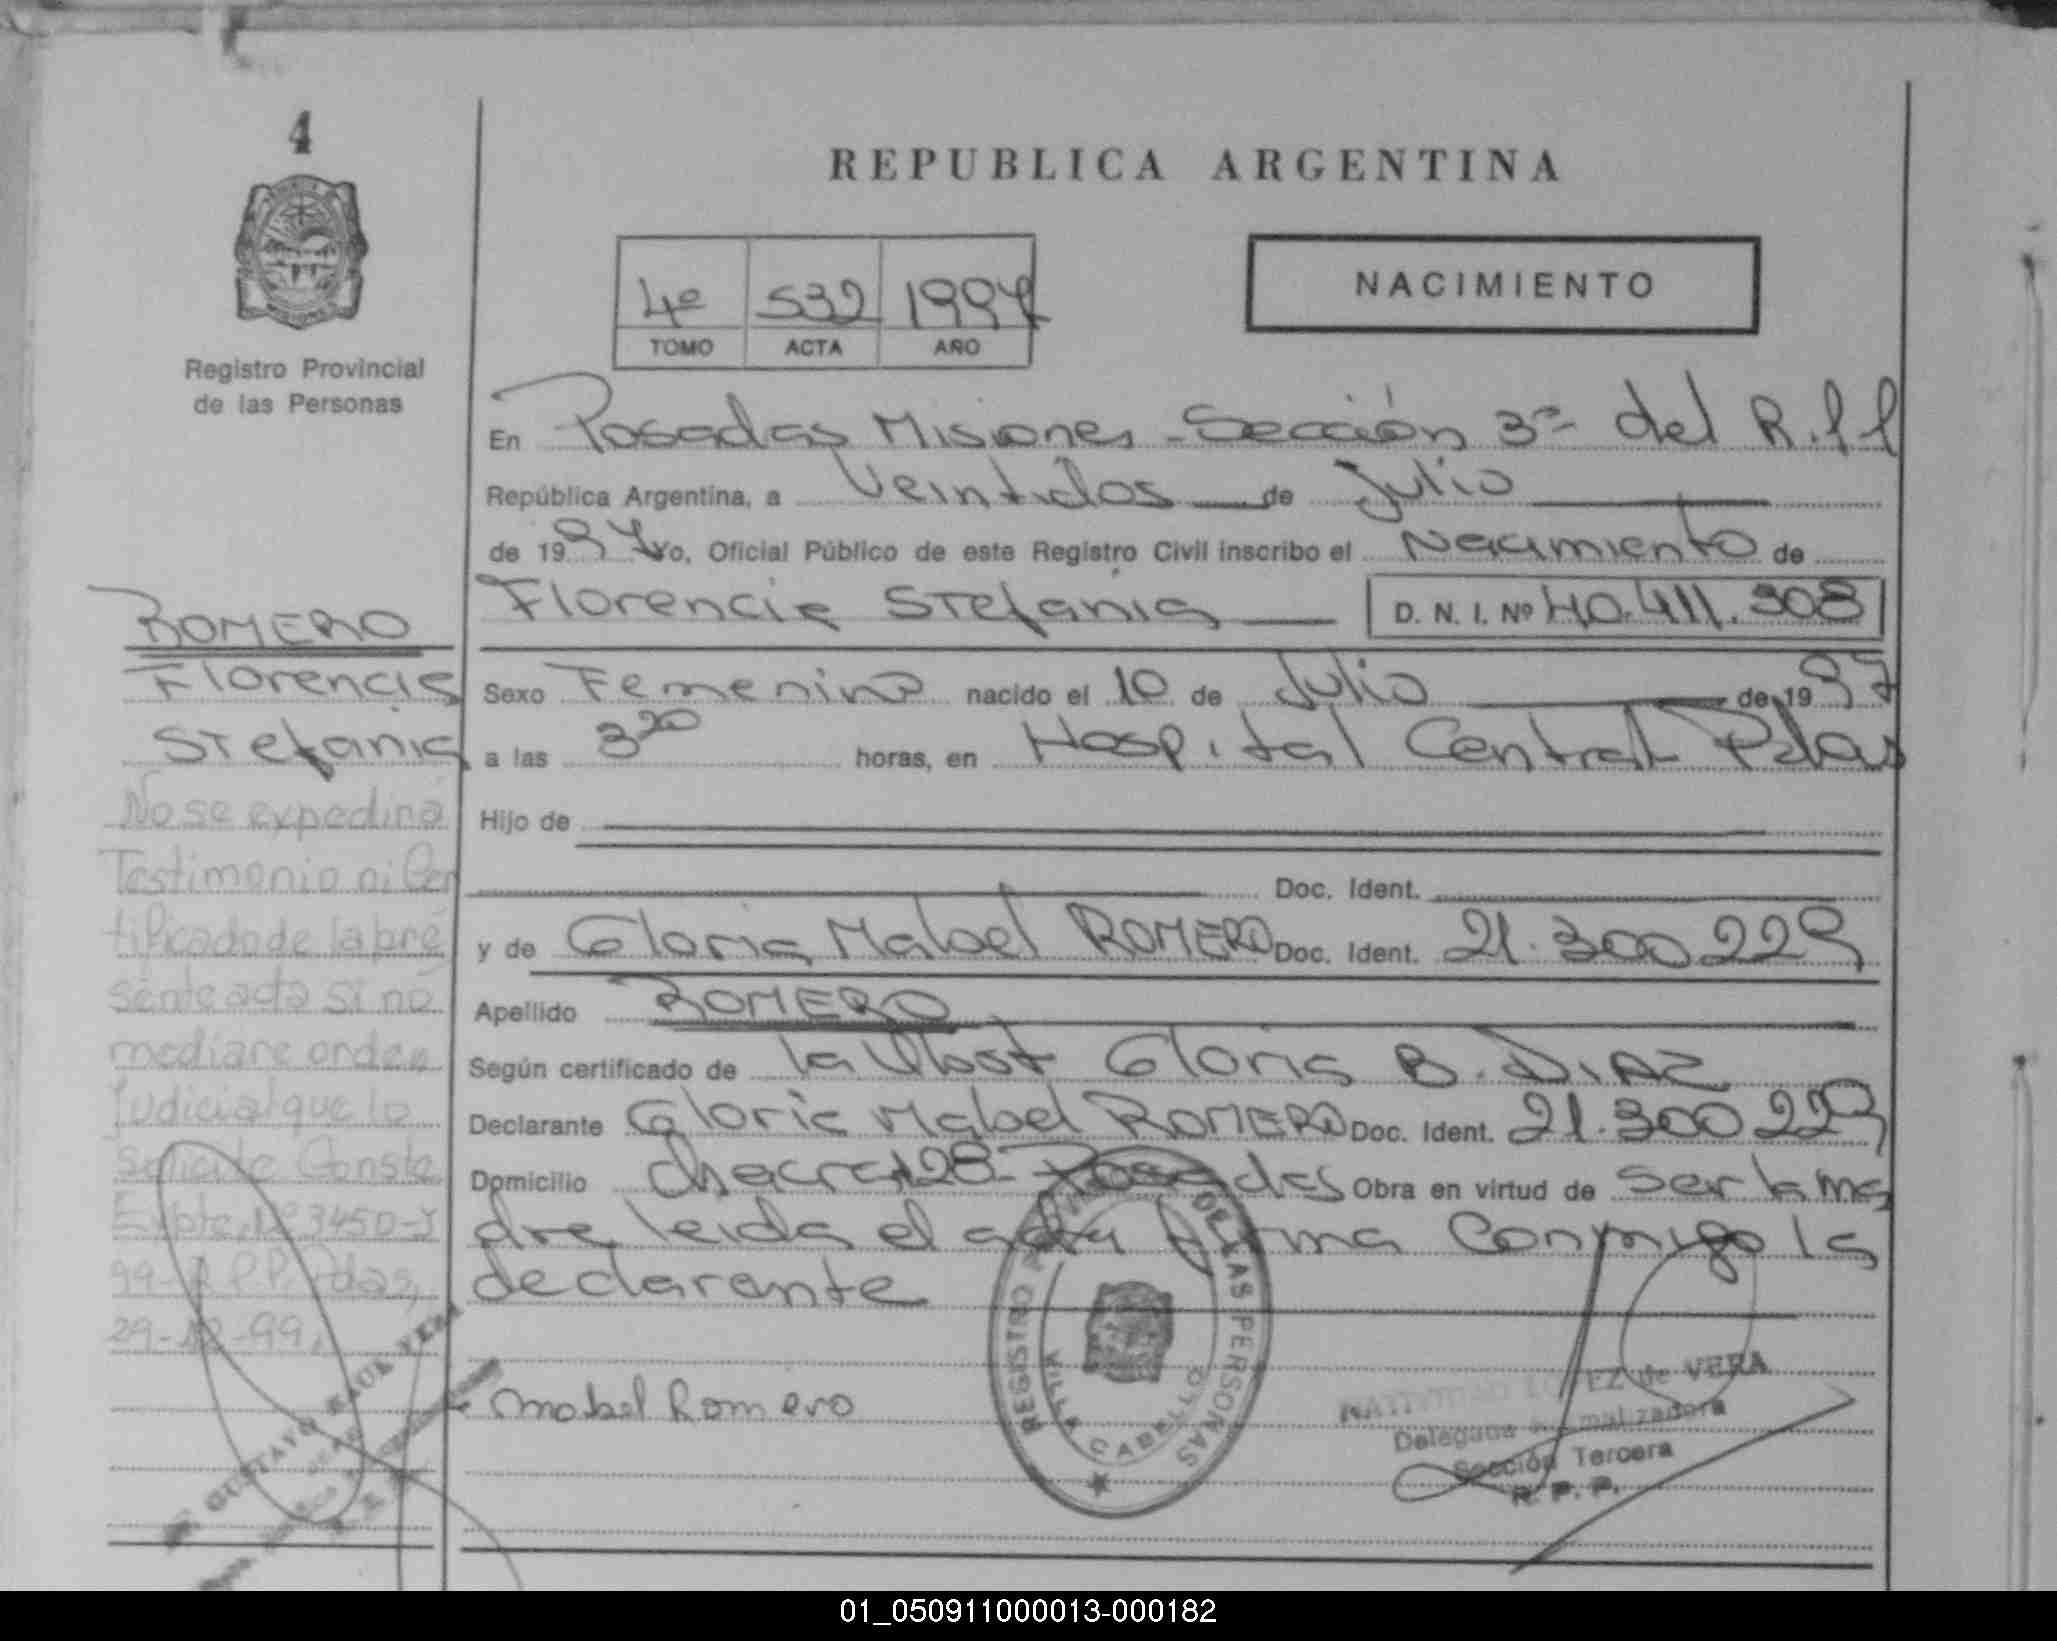 4
REPUBLICA ARGENTINA
4º 532 1997
TOMO ACTA AÑO
NACIMIENTO
Registro Provincial
de las Personas
En Posadas Misiones - Sección 3ª del R.P.P
República Argentina, a Veintidos de Julio
de 1997 Yo, Oficial Público de este Registro Civil inscribo el Nacimiento de
Florencia Stefania D. N. I. Nº 40.411.308
Sexo Femenino nacido el 10 de Julio de 1997
a las 3 20 horas, en Hospital Central Pdas
Hijo de
Doc. Ident.
y de Gloria Mabel ROMERO Doc. Ident. 21.300.229
Apellido ROMERO
Según certificado de la Obst Gloria B. DIAZ
Declarante Gloria Mabel ROMERO Doc. Ident. 21.300.229
Domicilio chacra 128 - Posadas Obra en virtud de ser la ma
dre leida el acta firma Conmigo la
declarante
Mabel Romero
REGISTRO DE LAS PERSONAS
VILLA CABELLO
NATIVIDAD LOPEZ de VERA
Delegada Normalizadora
Sección Tercera
R. P. P.
ROMERO
Florencia
Stefania
No se expedirá
Testimonio ni Cer
tificado de la pre
sente acta si no
mediare orden
Judicial que lo
solicite Conste
Expte. Nº 3450-J
99-R.P.P. Pdas,
29-12-99.
GUSTAVO RAUL VERA
01_050911000013-000182